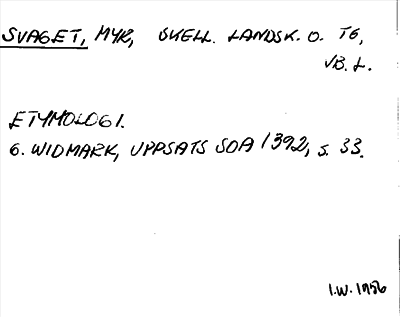 SVAGET, MYR, SKELL. LANDSK. O. TG,
VB. L.
ETYMOLOGI.
G. WIDMARK, UPPSATS SOA 1392, S. 33.
I.W. 1956